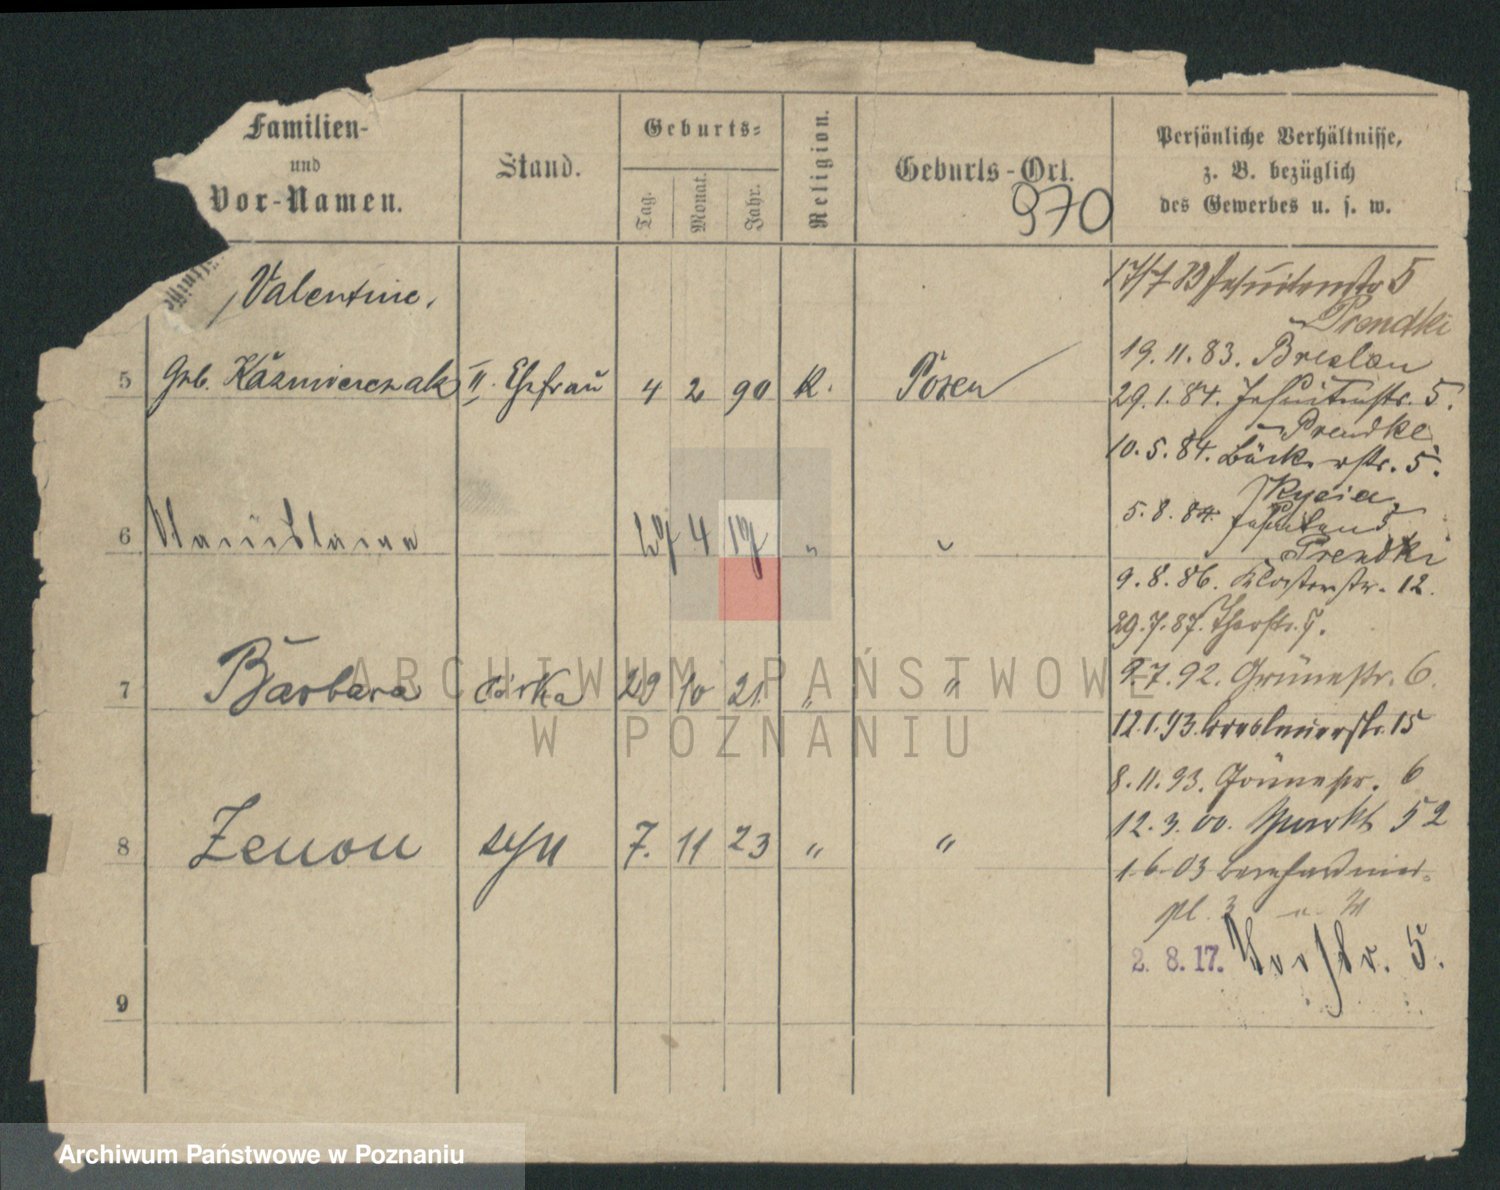 Familien-
und
Vor-Namen.
Stand.
Geburts-
Tag.
Monat.
Jahr.
Religion.
Geburts-Ort.
970
Persönliche Verhältnisse,
z. B. bezüglich
des Gewerbes u. s. w.
Valentine,
5 Geb. Kazmierczak II. Ehefrau 4 2 90 K. Posen
6 4
7 Barbara córka 29 10 21. " "
8 Zenon syn 7. 11 23 " "
9
17/7 83 Jesuitenstr 5
Prendki
19. 11. 83. Breslau
29. 1. 84. Jesuitenstr. 5.
Prendke
10. 5. 84. Bäckerstr. 5.
5. 8. 84. Jesuitenstr 5
Prendki
9. 8. 86. Klosterstr. 12.
29. 7. 87.
9. 7. 92. Grünestr. 6.
12. 1. 93. Breslauerstr. 15
8. 11. 93. Grünestr. 6
12. 3. 00. Markt 52
1. 6. 03 Bernhardiner-
pl. 3
2. 8. 17. Torstr. 5.
ARCHIWUM PAŃSTWOWE
W POZNANIU
Archiwum Państwowe w Poznaniu